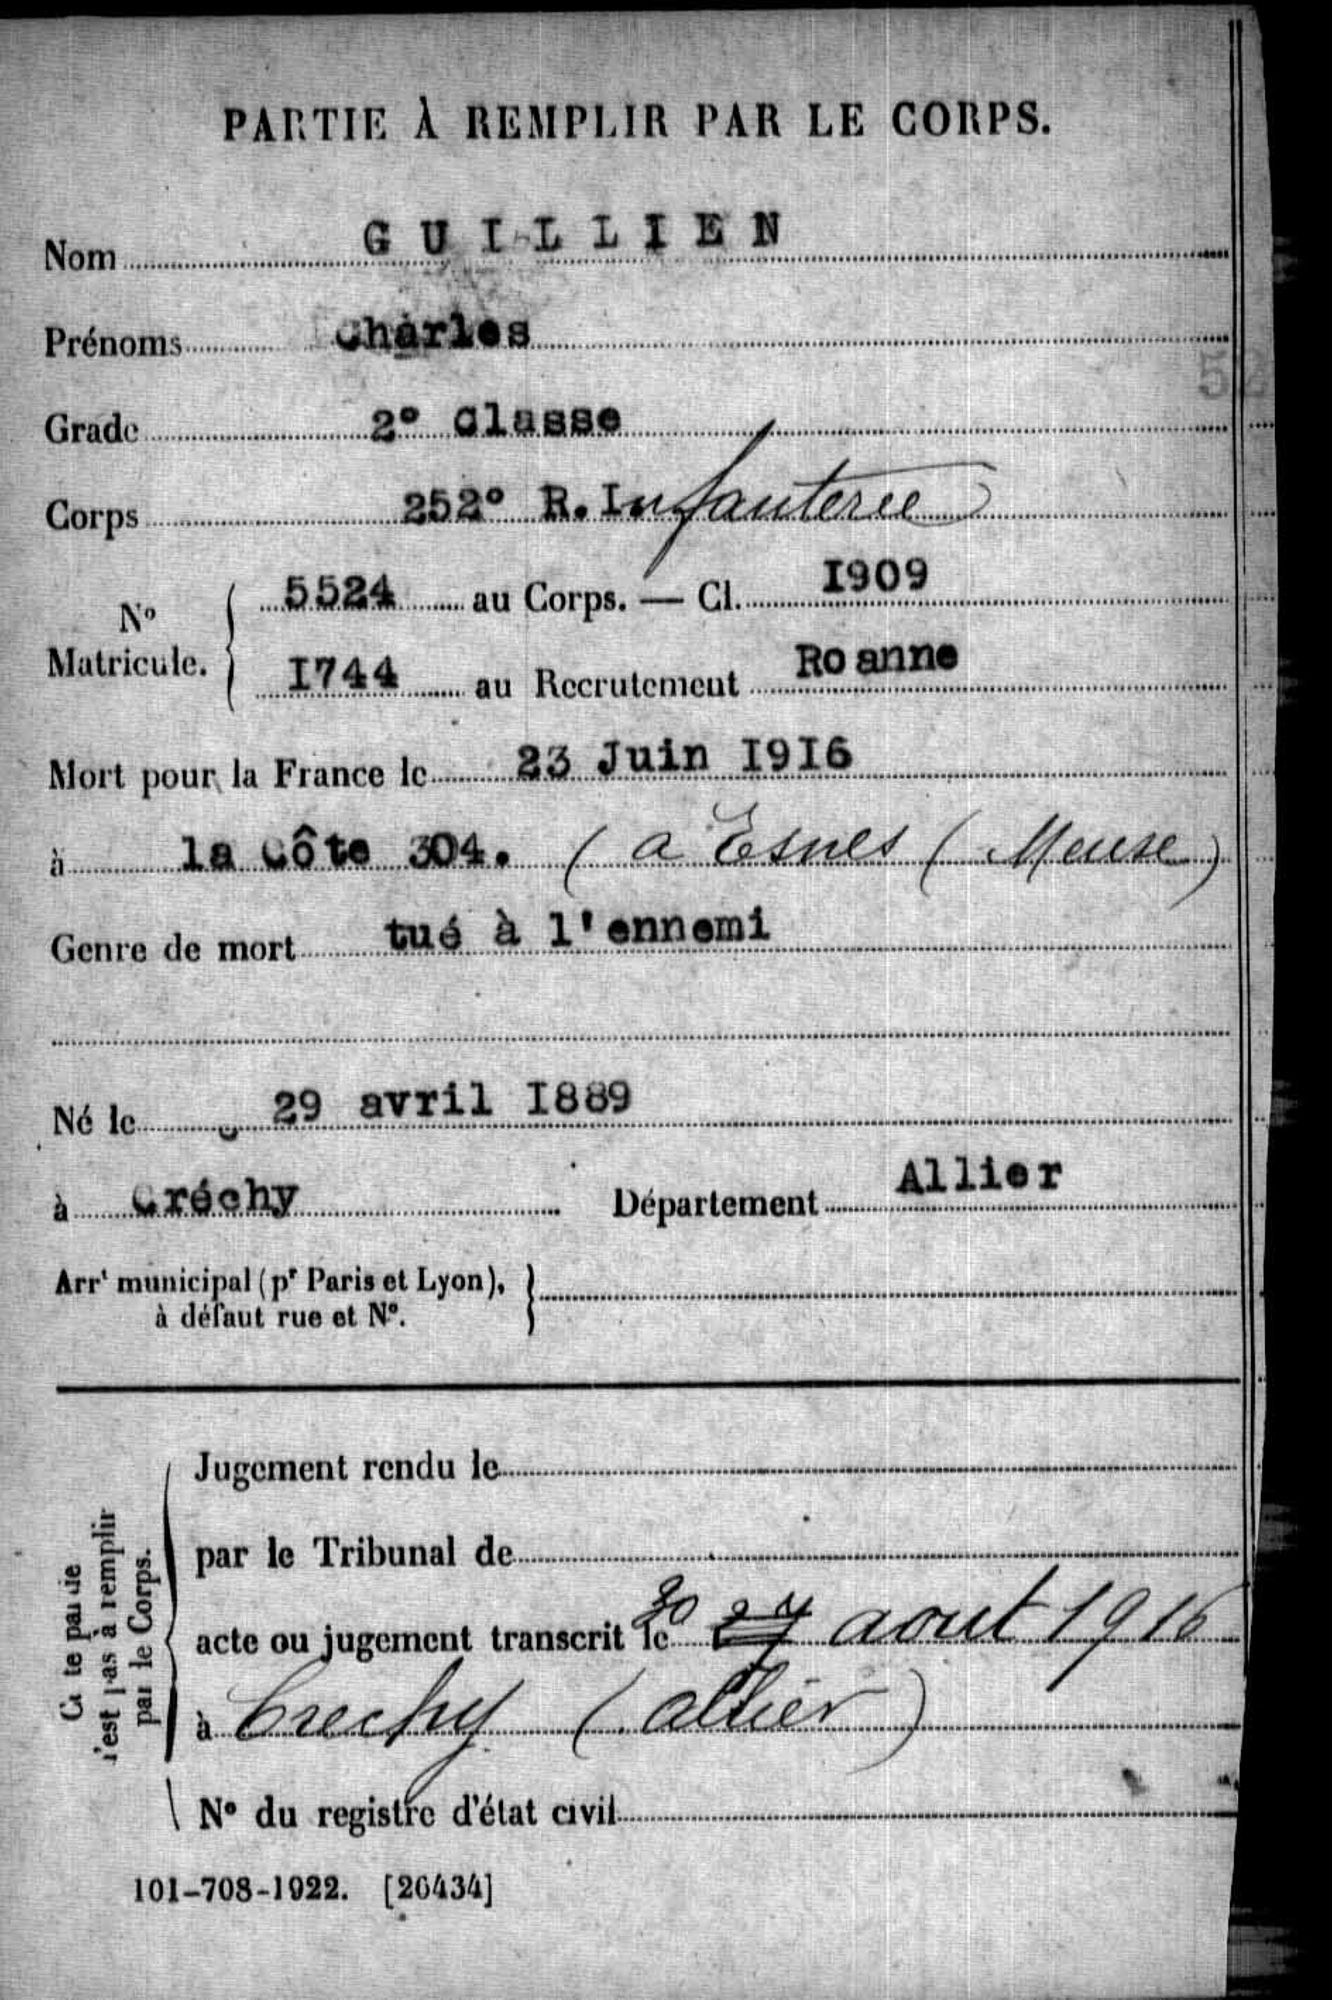 PARTIE À REMPLIR PAR LE CORPS.
Nom GUILLIEN
Prénoms Charles
Grade 2° Classe
Corps 252° R. Infanterie
N° Matricule. 5524 au Corps. — Cl. I909
I744 au Recrutement Roanne
Mort pour la France le 23 Juin I9I6
à la Côte 304. (a Esnes (Meuse)
Genre de mort tué à l'ennemi
Né le 29 avril I889
à Créchy Département Allier
Arrt municipal (pr Paris et Lyon),
à défaut rue et N°.
Jugement rendu le
par le Tribunal de
acte ou jugement transcrit le 30 27 aout 1916
à Crechy (allier)
N° du registre d'état civil
Cette partie
n'est pas à remplir
par le Corps.
101-708-1922. [26434]
52